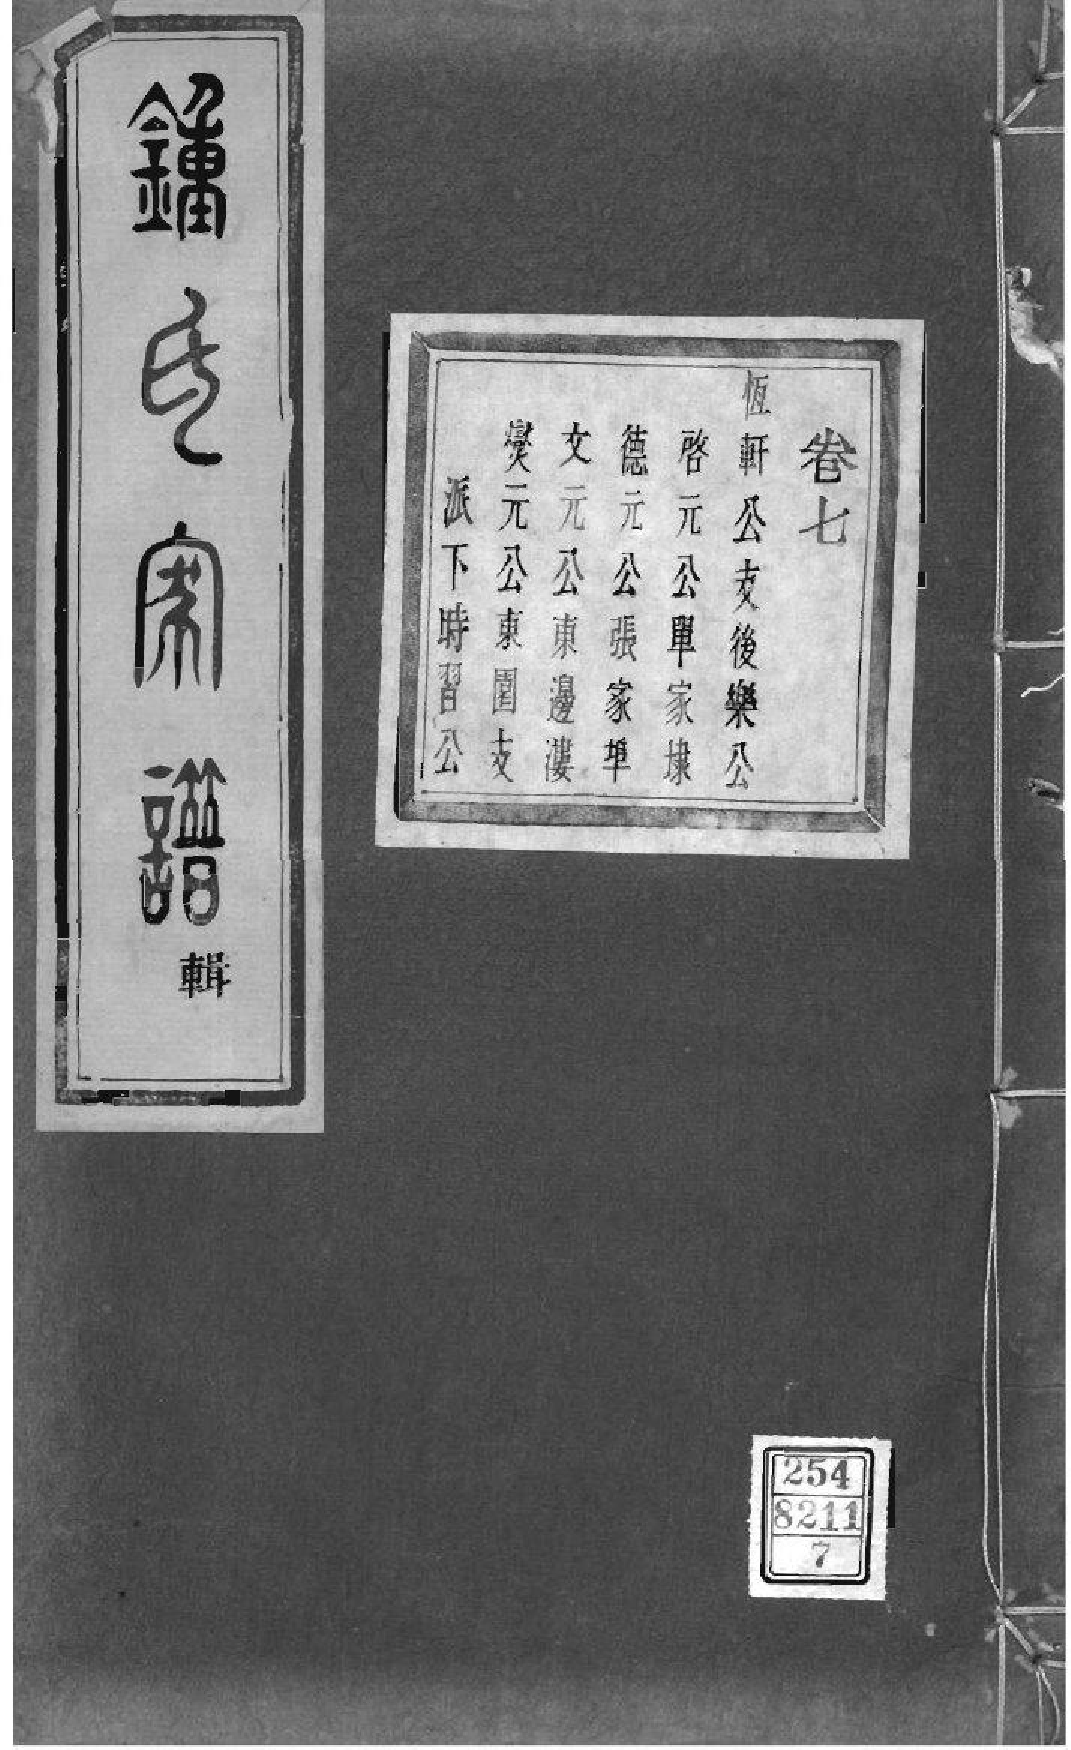 卷七
恆軒公支後樂公
啓元公單家埭
德元公張家埠
文元公東邊漊
燮元公東圍支
派下時習公
鍾氏家譜
輯
254
8211
7